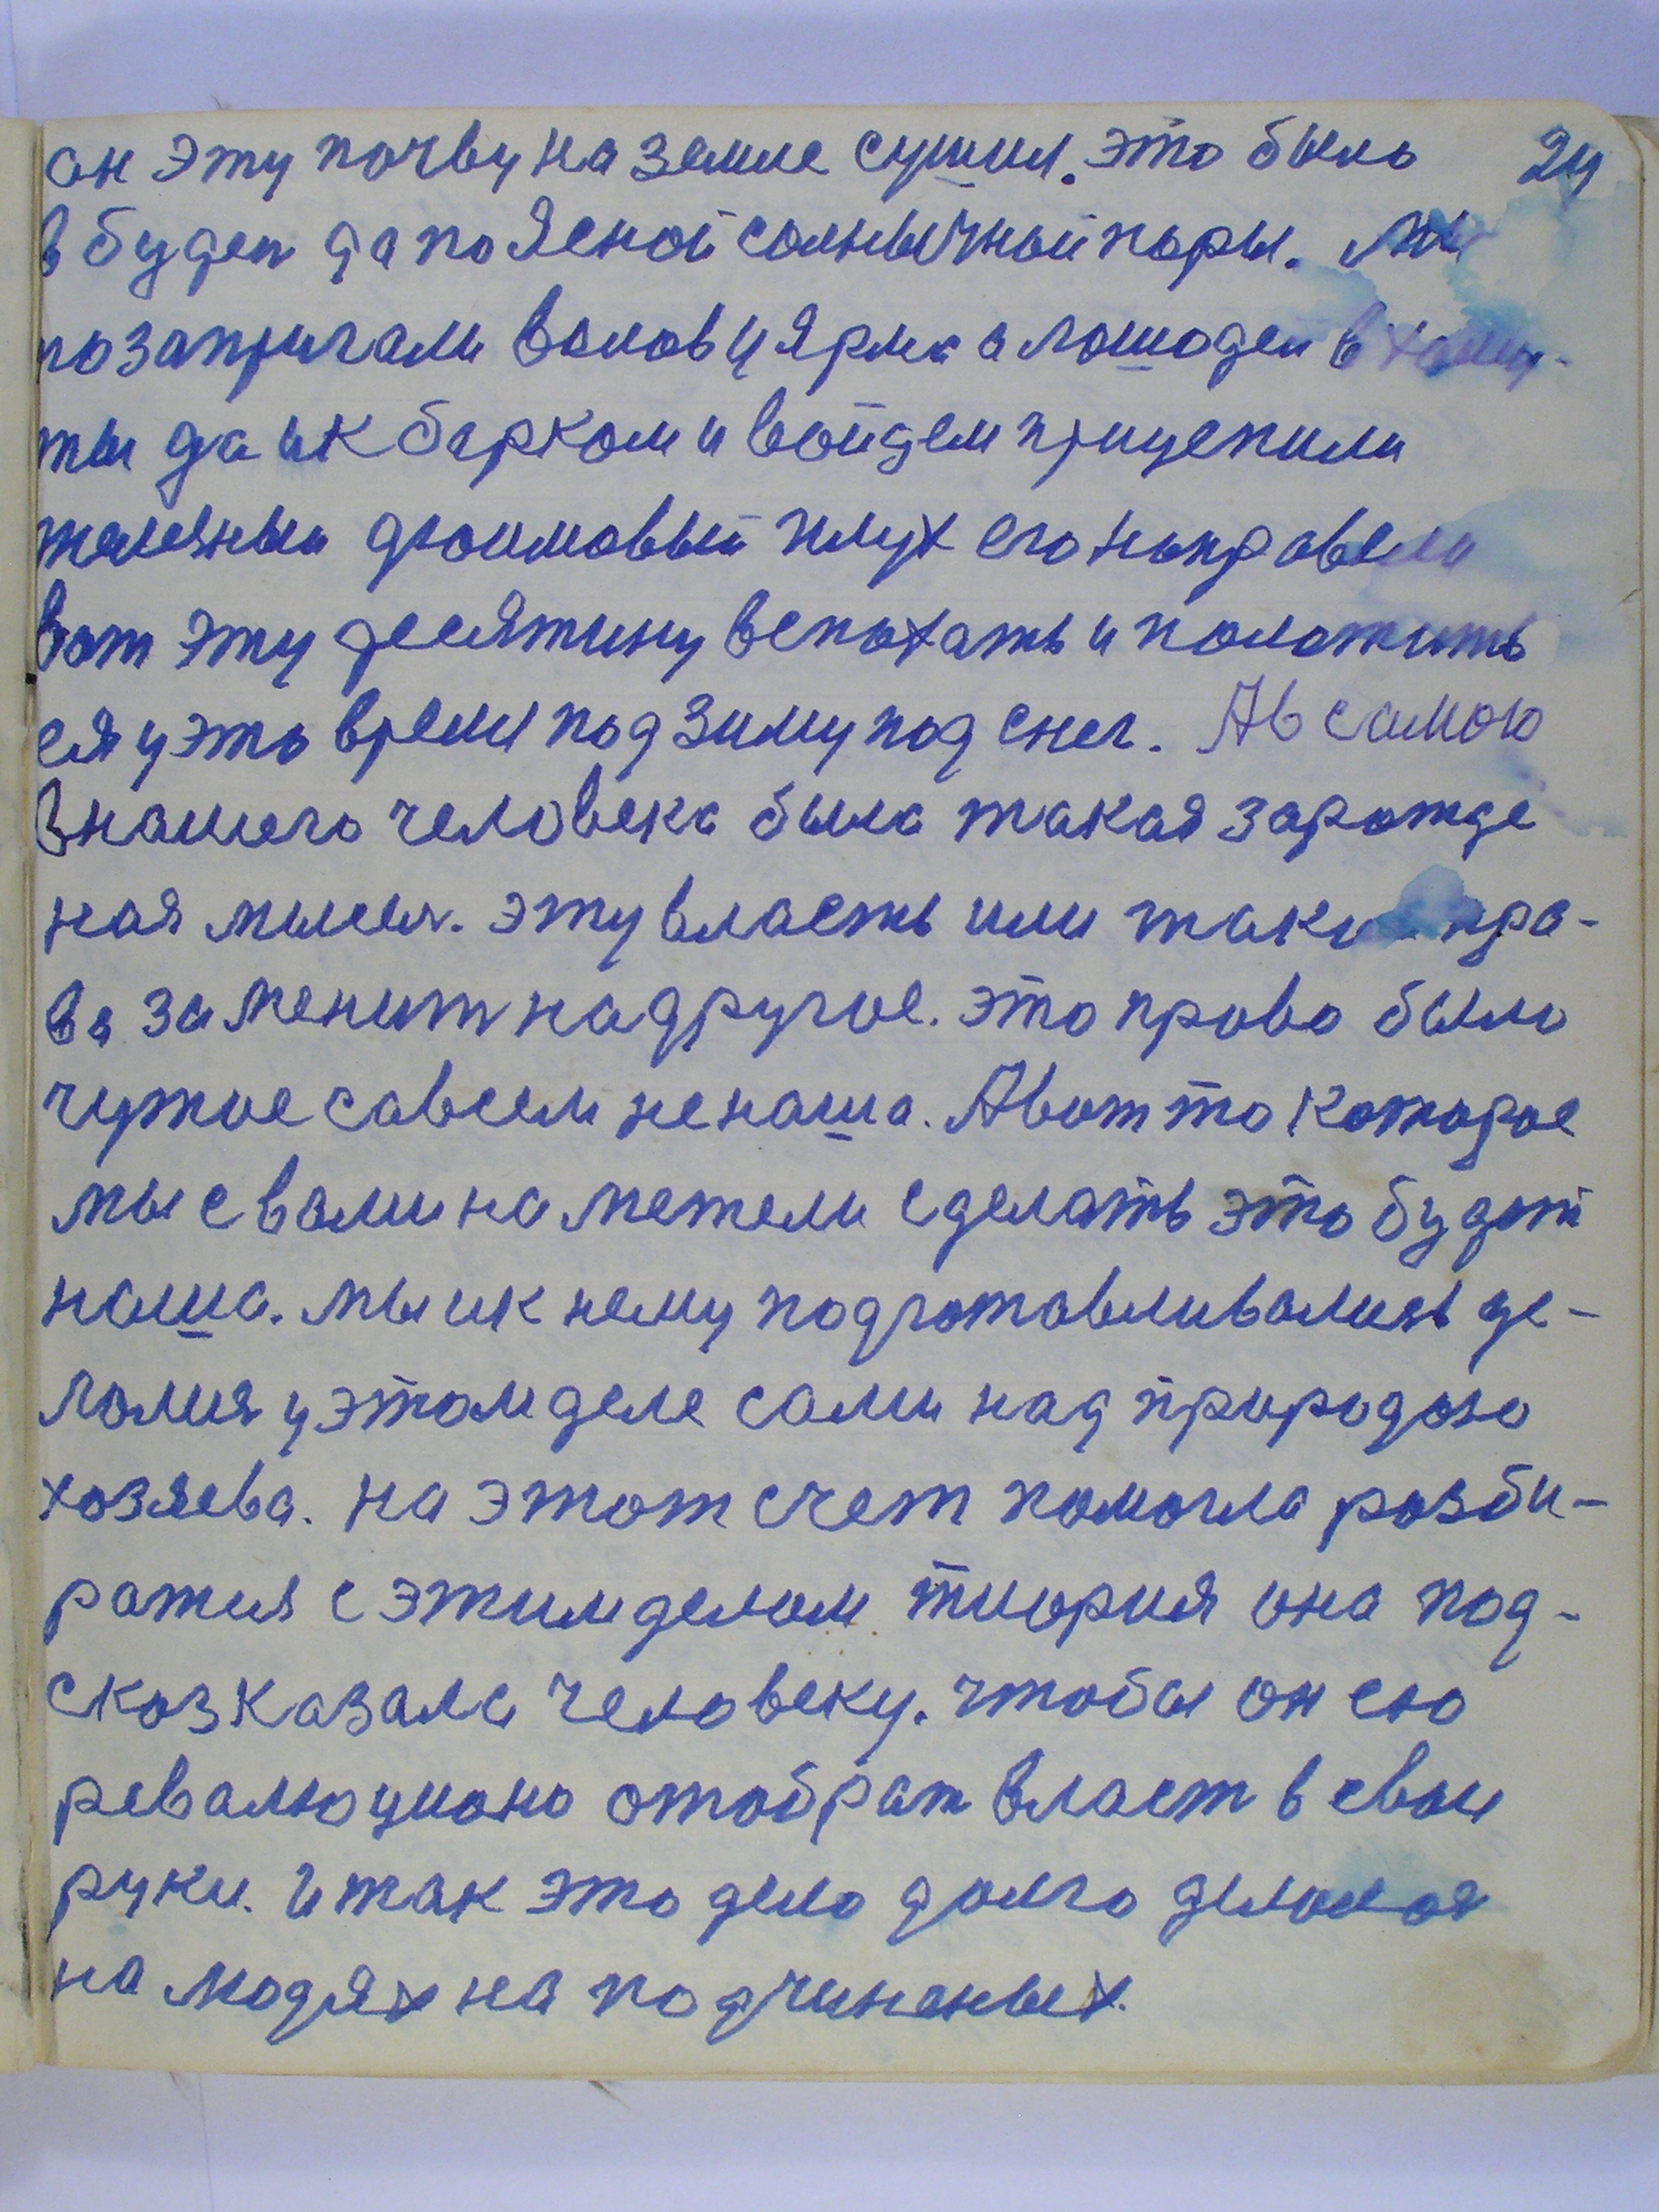 он эту почву на земле сушил. это было 24
в будет да по Ясной солнычной поры. Мы
позапригали волов у Ярма а лошодей в хому-
ты да и к барком и войдем прицепили
железный двоимовый плух его направели
вот эту десятину вспохать и положить
ея у это время под зиму под снег. А в самою
в нашего человека была такая зарожде
ная мысля. эту власть или таки пра-
во заменит на другое. это право было
чужое савсем не наша. А вот то которое
мы с вами наметели сделать это будет
наша. мы и к нему подготавливались де-
лолися у этом деле сами над природою
хозяева. на этот счет помогла розби-
ратися с этим делом тиория она под-
сказказала человеку. чтобы он ею
ревалюционо отобрат власт в свои
руки. И так это дело долго делолоя
на людях на подчиненых.